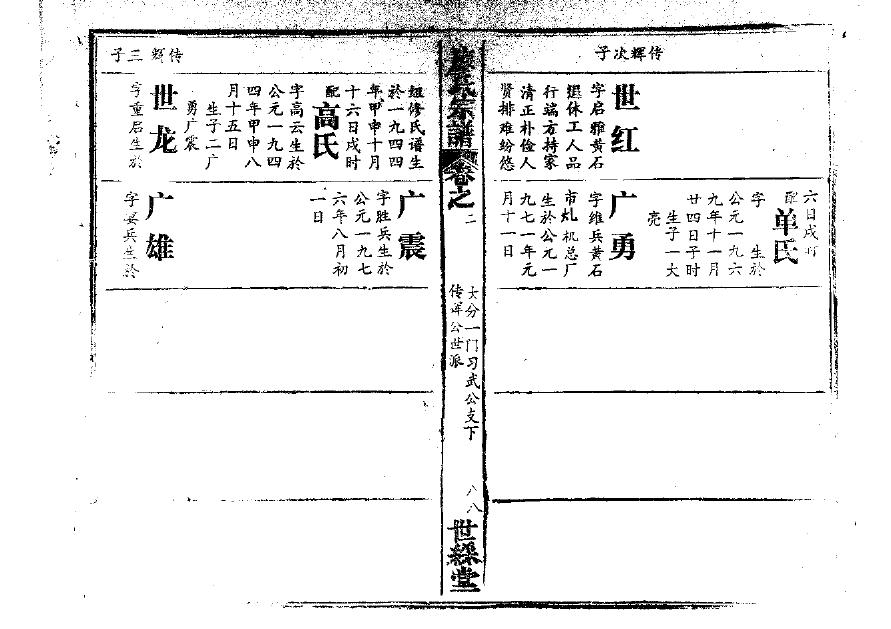 传辉次子
世红
字启雅黄石
退休工人品
行端方持家
清正朴俭人
贤排难纷悠
六日戌时
配单氏
字 生於
公元一九六
九年十一月
廿四日子时
生子一大
亮
广勇
字维兵黄石
市机总厂
生於公元一
九七一年元
月十一日
氏宗譜 卷之二
大分一门习武公支下
传辉公世派
八八
世綵堂
传辉三子
组修氏谱生
於一九四四
年甲申十月
十六日戌时
配高氏
字高云生於
公元一九四
四年甲申八
月十五日
生子二广
勇广震
世龙
字重后生於
广震
字胜兵生於
公元一九七
六年八月初
一日
广雄
字宴兵生於